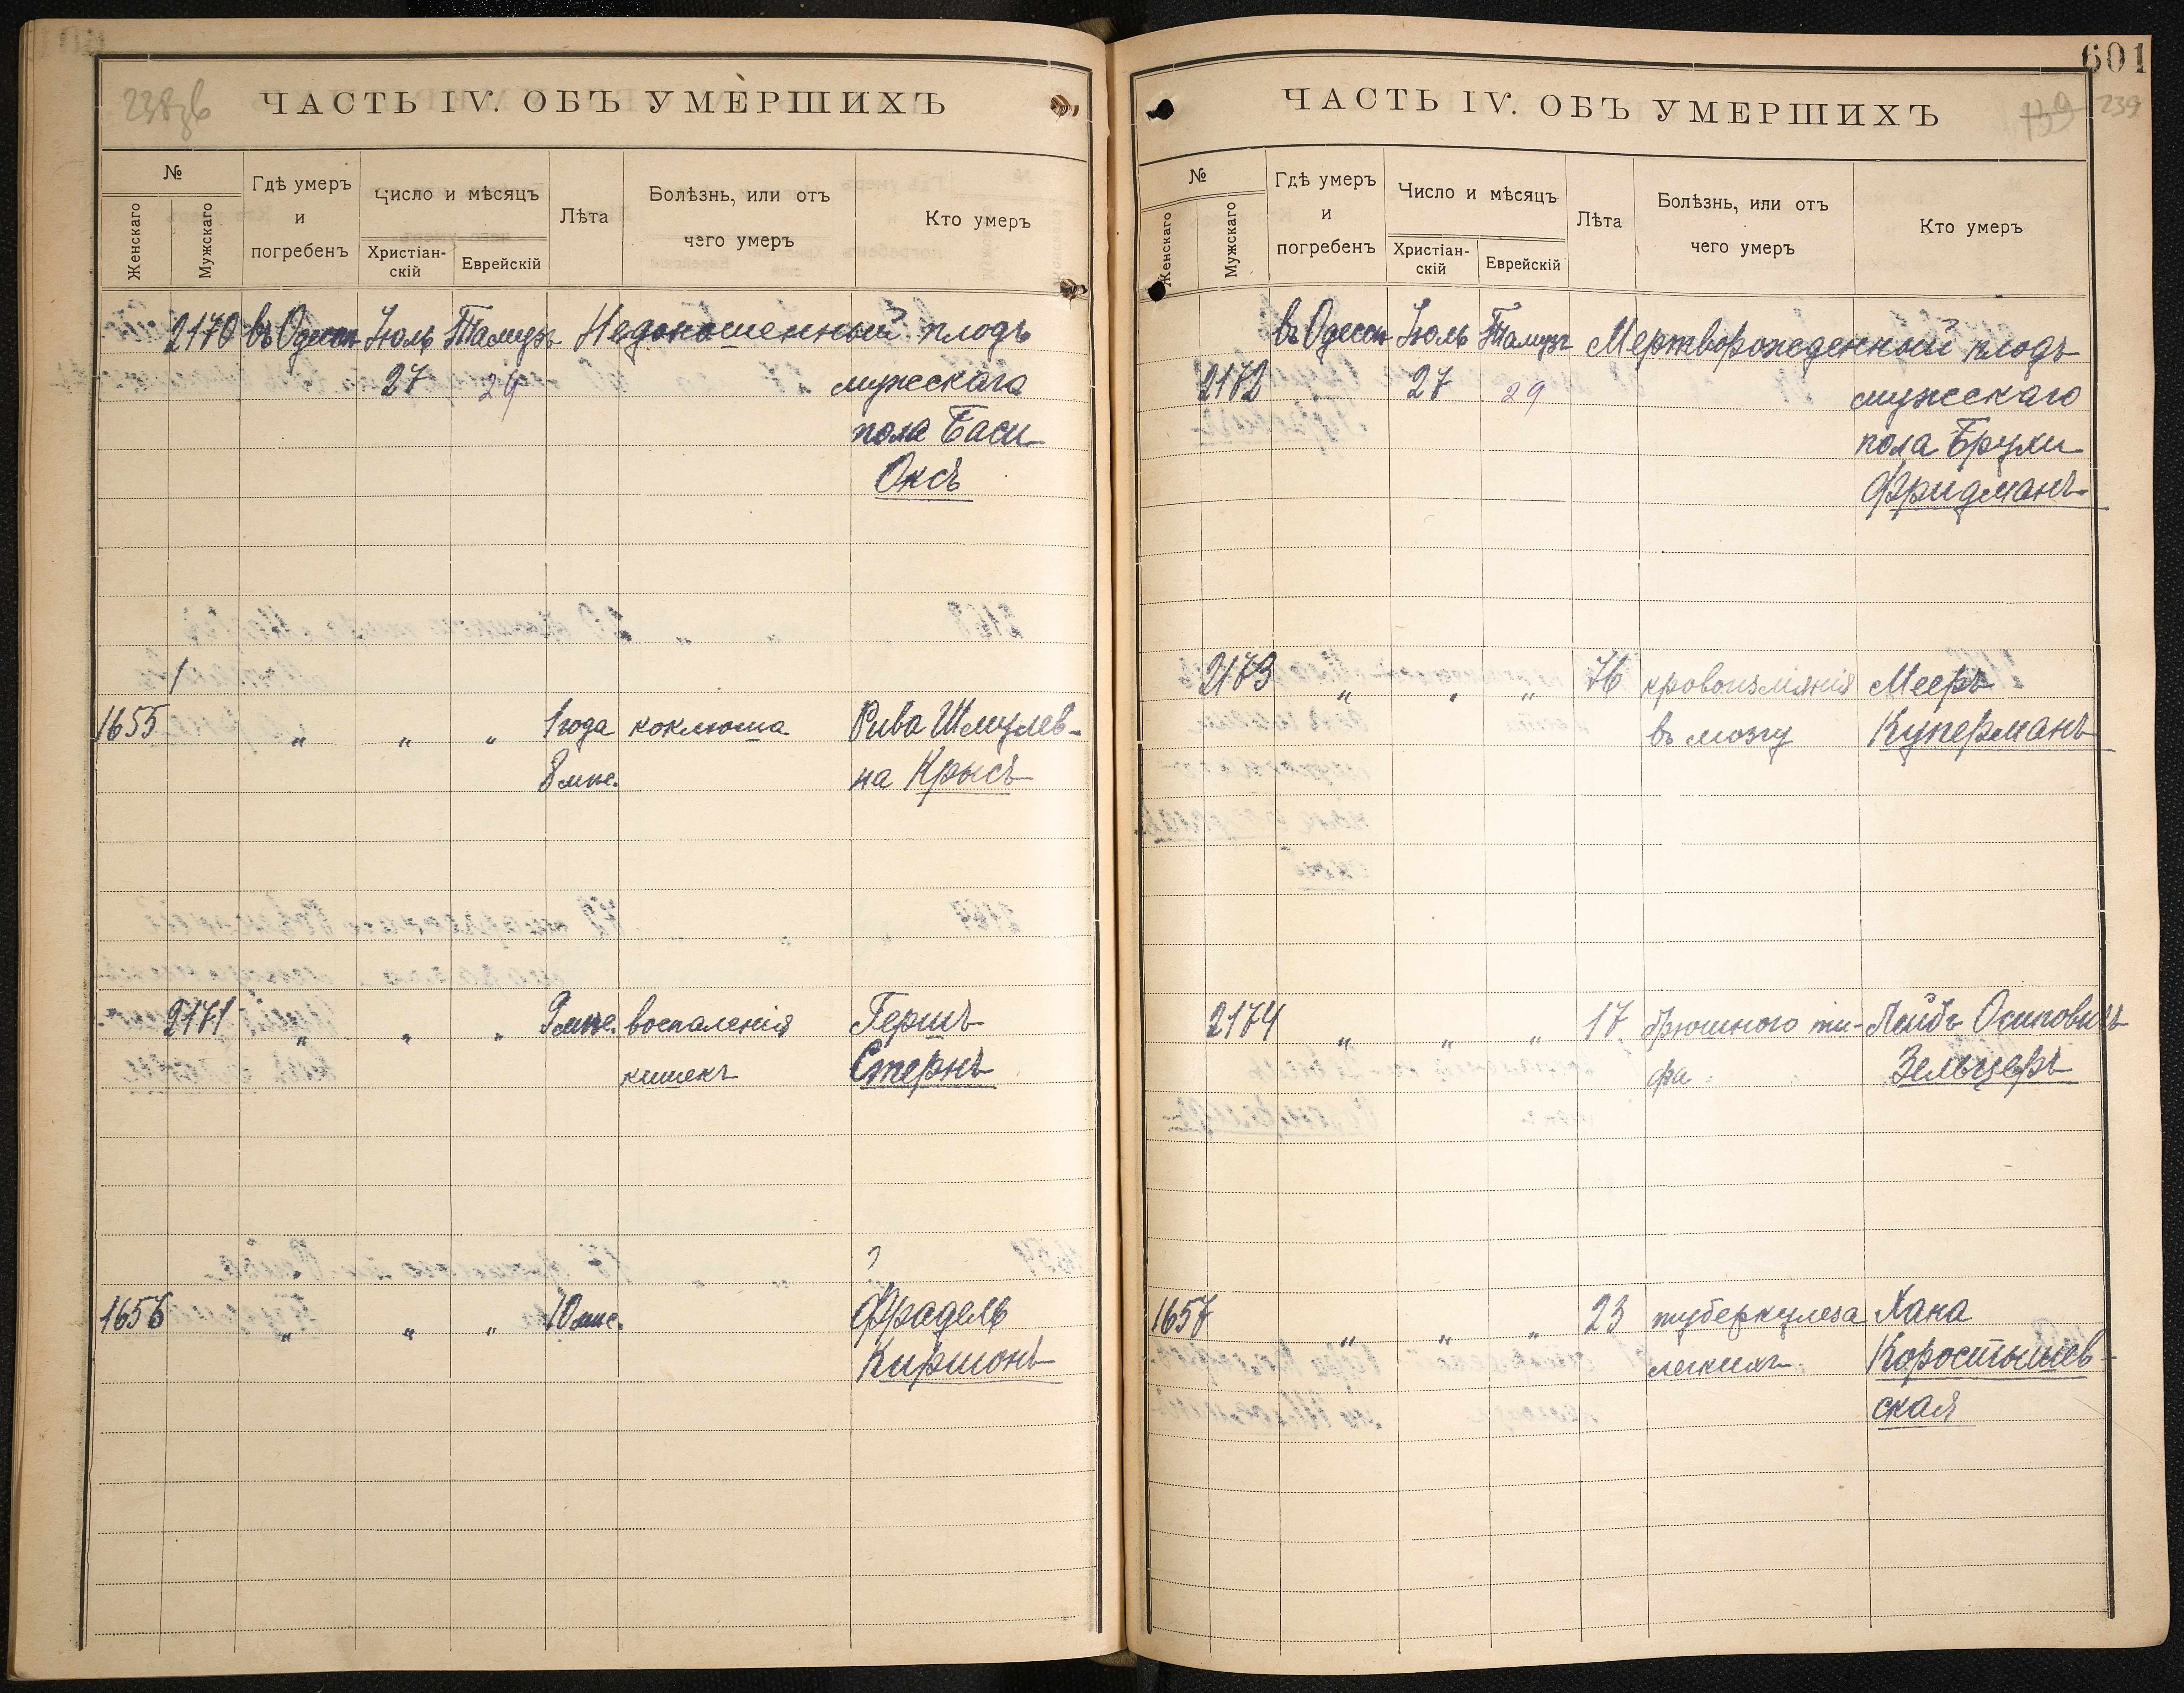 238 об
ЧАСТЬ IV. ОБЪ УМЕРШИХЪ
№
Женскаго
Мужскаго
Гдѣ умеръ
и
погребенъ
Число и мѣсяцъ
Христіан-
скій
Еврейскій
Лѣта
Болѣзнь, или отъ
чего умеръ
Кто умеръ
2170 въ Одессѣ Іюль Тамузъ Недоношенный плодъ
27 29 мужескаго
пола Баси
Оксъ
1
1655 " " " 1 года коклюша Рива Шмулев-
8 мѣс. на Крысъ
2171 " " " 9 мѣс. воспаленія Гершъ
кишекъ Стернъ
?
1656 " " " 10 мѣс. Фрадель
Киршонъ
601
239
ЧАСТЬ IV. ОБЪ УМЕРШИХЪ
139
№
Женскаго
Мужскаго
Гдѣ умеръ
и
погребенъ
Число и мѣсяцъ
Христіан-
скій
Еврейскій
Лѣта
Болѣзнь, или отъ
чего умеръ
Кто умеръ
въ Одессѣ Іюль Тамузъ Мертворожденной плодъ
2172 27 29 мужескаго
пола Брухи
Фридманъ
2173 " " " 76 кровоизліянія Мееръ
въ мозгу Куперманъ
2174 " " " 17 брюшного ти- Лейбъ Осиповичъ
фа Зельцеръ
1657 " " " 23 туберкулеза Хана
легкихъ Коростышев-
ская